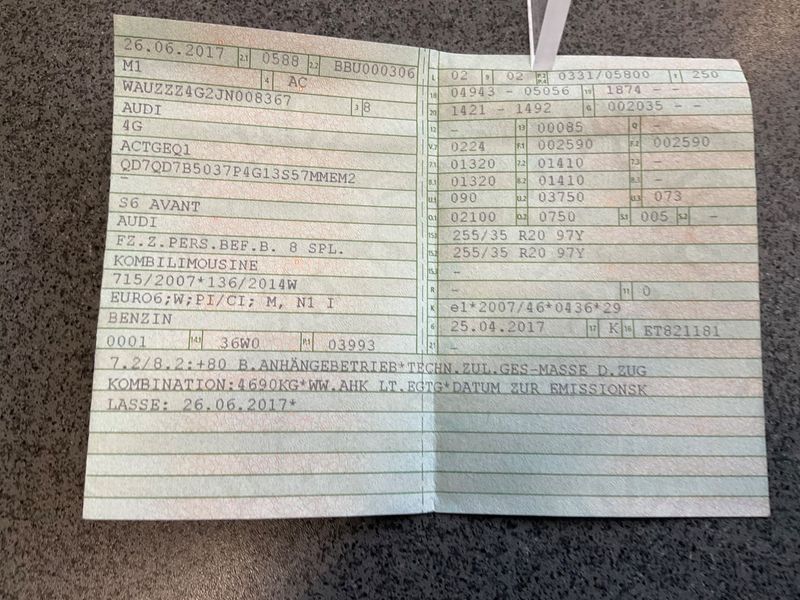 26.06.2017 2.1 0588 2.2 BBU000306
M1 4 AC
WAUZZZ4G2JN008367 3 8
AUDI
4G
ACTGEQ1
QD7QD7B5037P4G13S57MMEM2
–
S6 AVANT
AUDI
FZ.Z.PERS.BEF.B. 8 SPL.
KOMBILIMOUSINE
715/2007*136/2014W
EURO6;W;PI/CI; M, N1 I
BENZIN
0001 14.1 36W0 P.1 03993
L 02 9 02 P.2 P.4 0331/05800 T 250
18 04943 - 05056 19 1874 - -
20 1421 - 1492 G 002035 - -
12 - 13 00085 Q -
V.7 0224 F.1 002590 F.2 002590
7.1 01320 7.2 01410 7.3 -
8.1 01320 8.2 01410 8.3 -
U.1 090 U.2 03750 U.3 073
O.1 02100 O.2 0750 S.1 005 S.2 -
15.1 255/35 R20 97Y
15.2 255/35 R20 97Y
15.3 -
R - 11 0
K e1*2007/46*0436*29
6 25.04.2017 17 K 16 ET821181
21 -
7.2/8.2:+80 B.ANHÄNGEBETRIEB*TECHN.ZUL.GES-MASSE D.ZUG
KOMBINATION:4690KG*WW.AHK LT.EGTG*DATUM ZUR EMISSIONSK
LASSE: 26.06.2017*